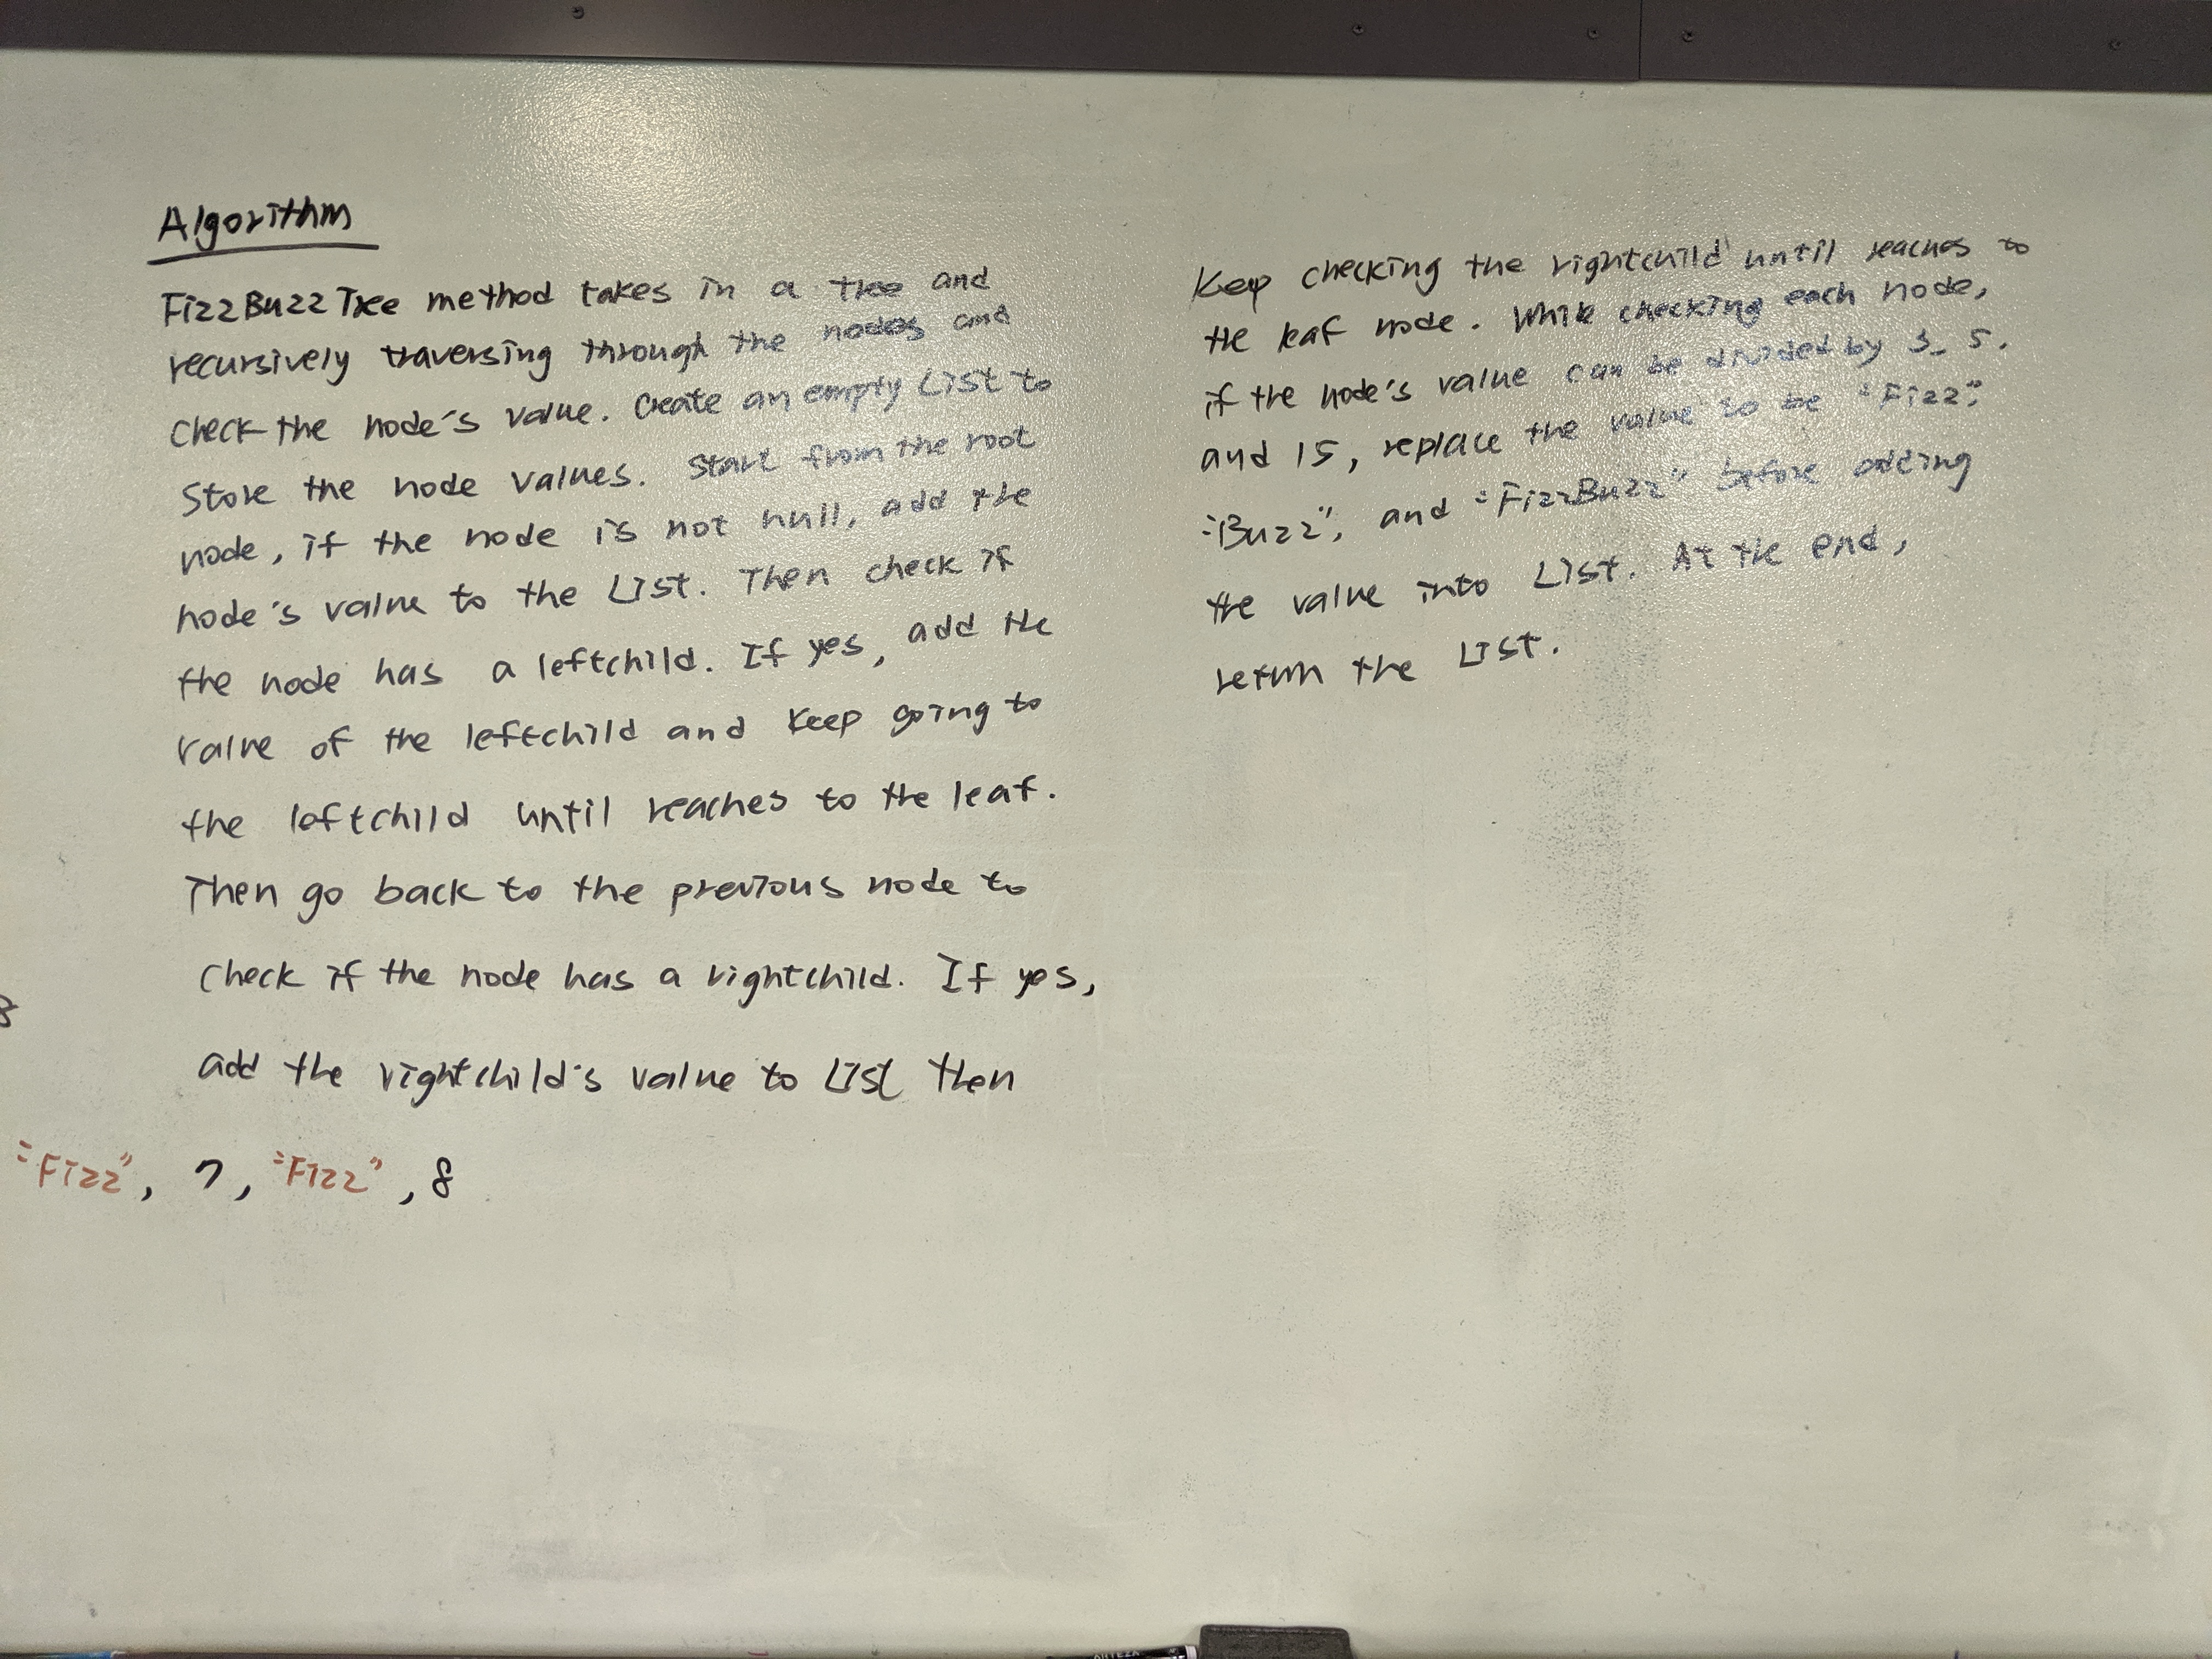 Algorithm
FizzBuzzTree method takes in a tree and
recursively traversing through the nodes and
check the node's value. Create an empty List to
Store the node values. Start from the root
node, if the node is not null, add the
node's value to the List. Then check if
the node has a leftchild. If yes, add the
value of the leftchild and keep going to
the leftchild until reaches to the leaf.
Then go back to the previous node to
check if the node has a rightchild. If yes,
add the rightchild's value to List then
"Fizz", 7, "Fizz", 8
Keep checking the rightchild until reaches to
the leaf node. While checking each node,
if the node's value can be divided by 3, 5,
and 15, replace the value to be "Fizz",
"Buzz", and "FizzBuzz" before adding
the value into List. At the end,
return the List.